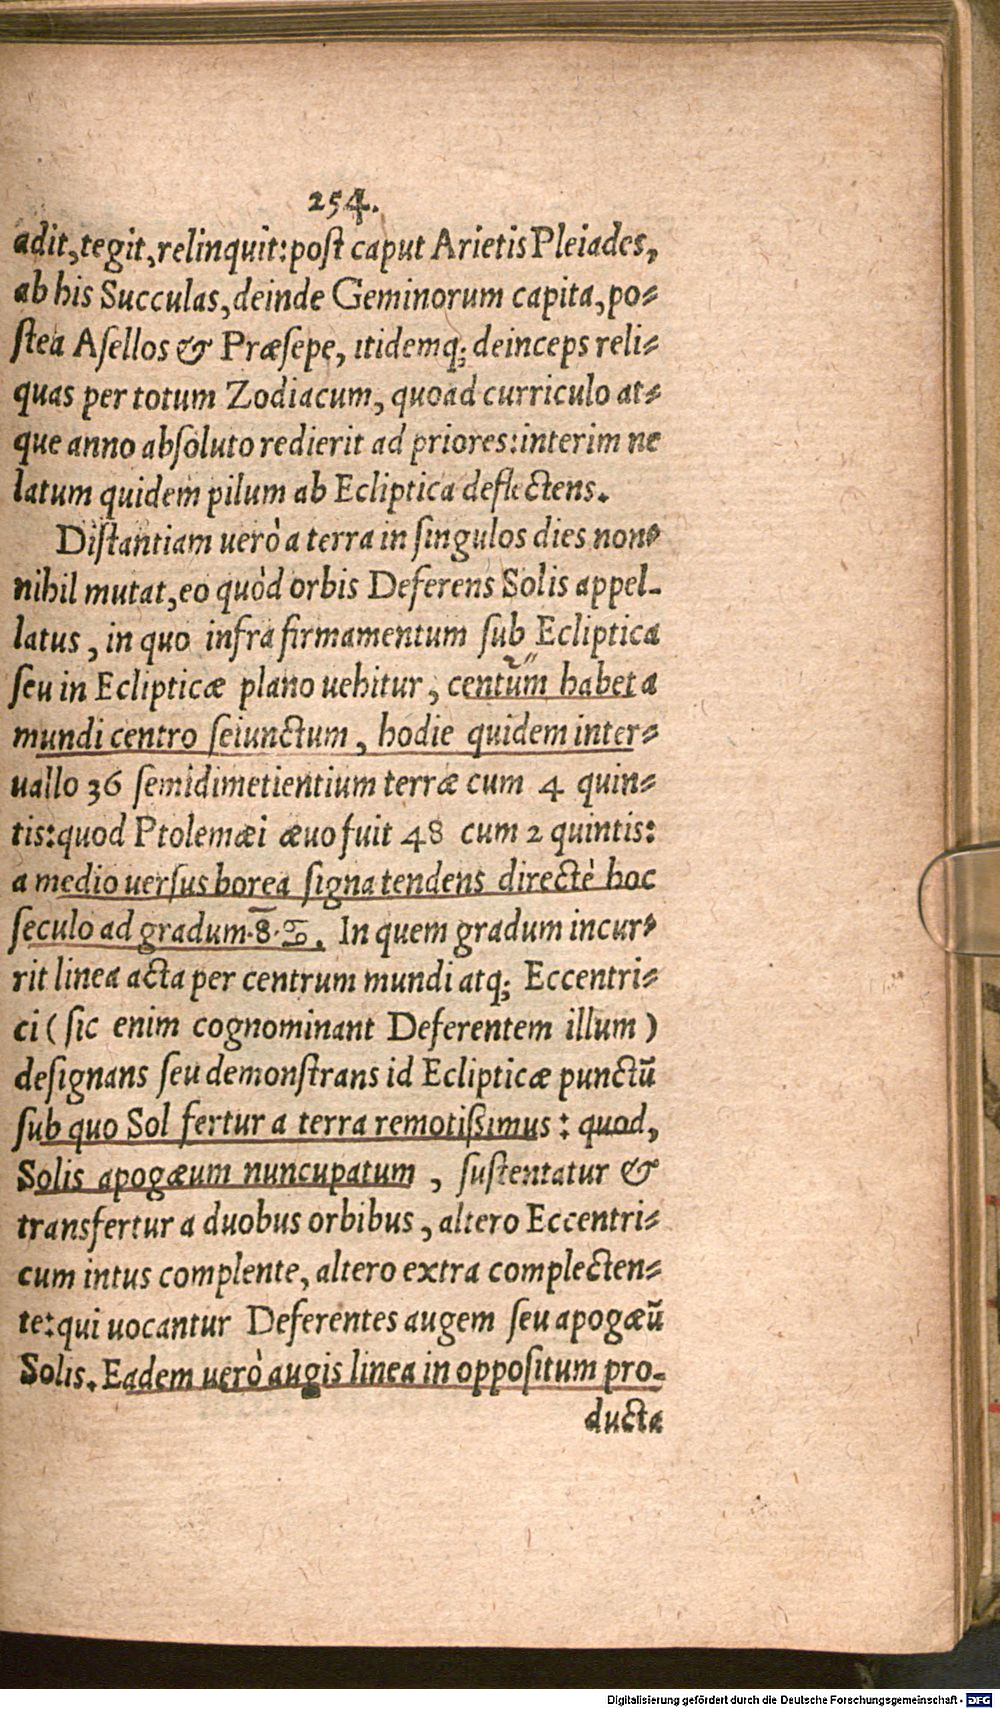 254.
adit, tegit, relinquit: post caput Arietis Pleiades,
ab his Succulas, deinde Geminorum capita, po-
stea Asellos & Præsepe, itidemq; deinceps reli-
quas per totum Zodiacum, quoad curriculo at-
que anno absoluto redierit ad priores: interim ne
latum quidem pilum ab Ecliptica deflectens.
Distantiam uerò a terra in singulos dies non-
nihil mutat, eo quòd orbis Deferens Solis appel-
latus, in quo infra firmamentum sub Ecliptica
seu in Eclipticæ plano uehitur, centum habet a
mundi centro seiunctum, hodie quidem inter-
uallo 36 semidimetientium terræ cum 4 quin-
tis: quod Ptolemæi æuo fuit 48 cum 2 quintis:
a medio uersus borea signa tendens directè hoc
seculo ad gradum .8. ♋. In quem gradum incur-
rit linea acta per centrum mundi atq; Eccentri-
ci (sic enim cognominant Deferentem illum)
designans seu demonstrans id Eclipticæ punctū
sub quo Sol fertur a terra remotissimus: quod,
Solis apogæum nuncupatum, sustentatur &
transfertur a duobus orbibus, altero Eccentri-
cum intus complente, altero extra complecten-
te: qui uocantur Deferentes augem seu apogæū
Solis. Eadem uerò augis linea in oppositum pro-
ducta
Digitalisierung gefördert durch die Deutsche Forschungsgemeinschaft - DFG